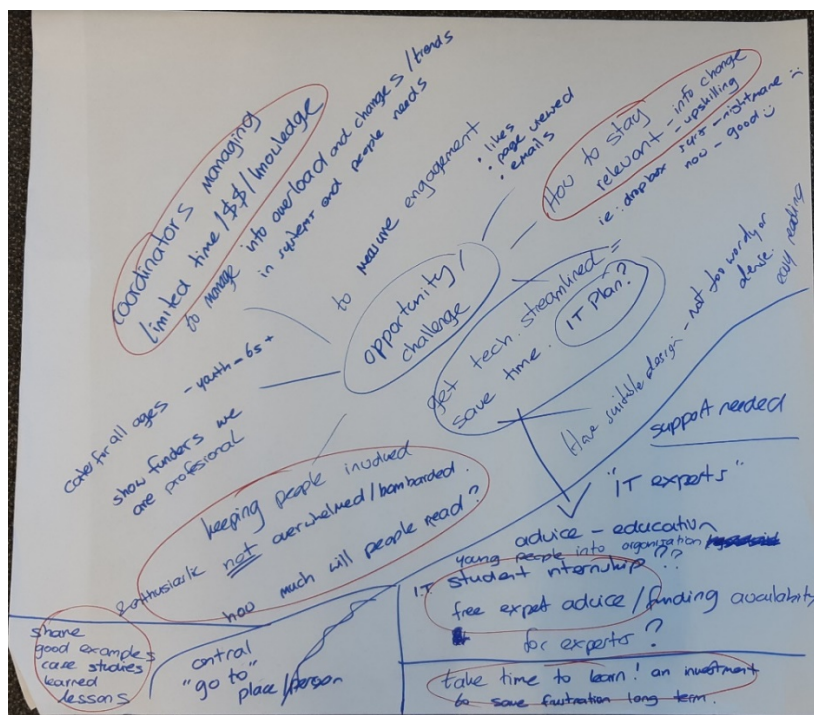 coordinators managing
limited time/$$/knowledge
to manage info overload and changes/trends
in systems and people needs
to measure engagement
• likes
• page viewed
• emails
How to stay
relevant - info change
- upskilling
ie: dropbox 5yrs - nightmare :(
now - good :)
opportunity/
challenge
get tech. streamlined =
save time.
IT Plan?
Have suitable design - not too wordy or
dense.
easy reading
cater for all ages - youth - 65+
show funders we
are profesional
keeping people involved
& enthusiastic not overwhelmed/bombarded.
how much will people read?
support needed
"IT experts"
advice - education
young people into organisation
IT student internship ??
free expert advice/funding availability
for experts?
take time to learn! an investment
to save frustration long term.
share
good examples
case studies
learned
lessons
central
"go to"
place/person